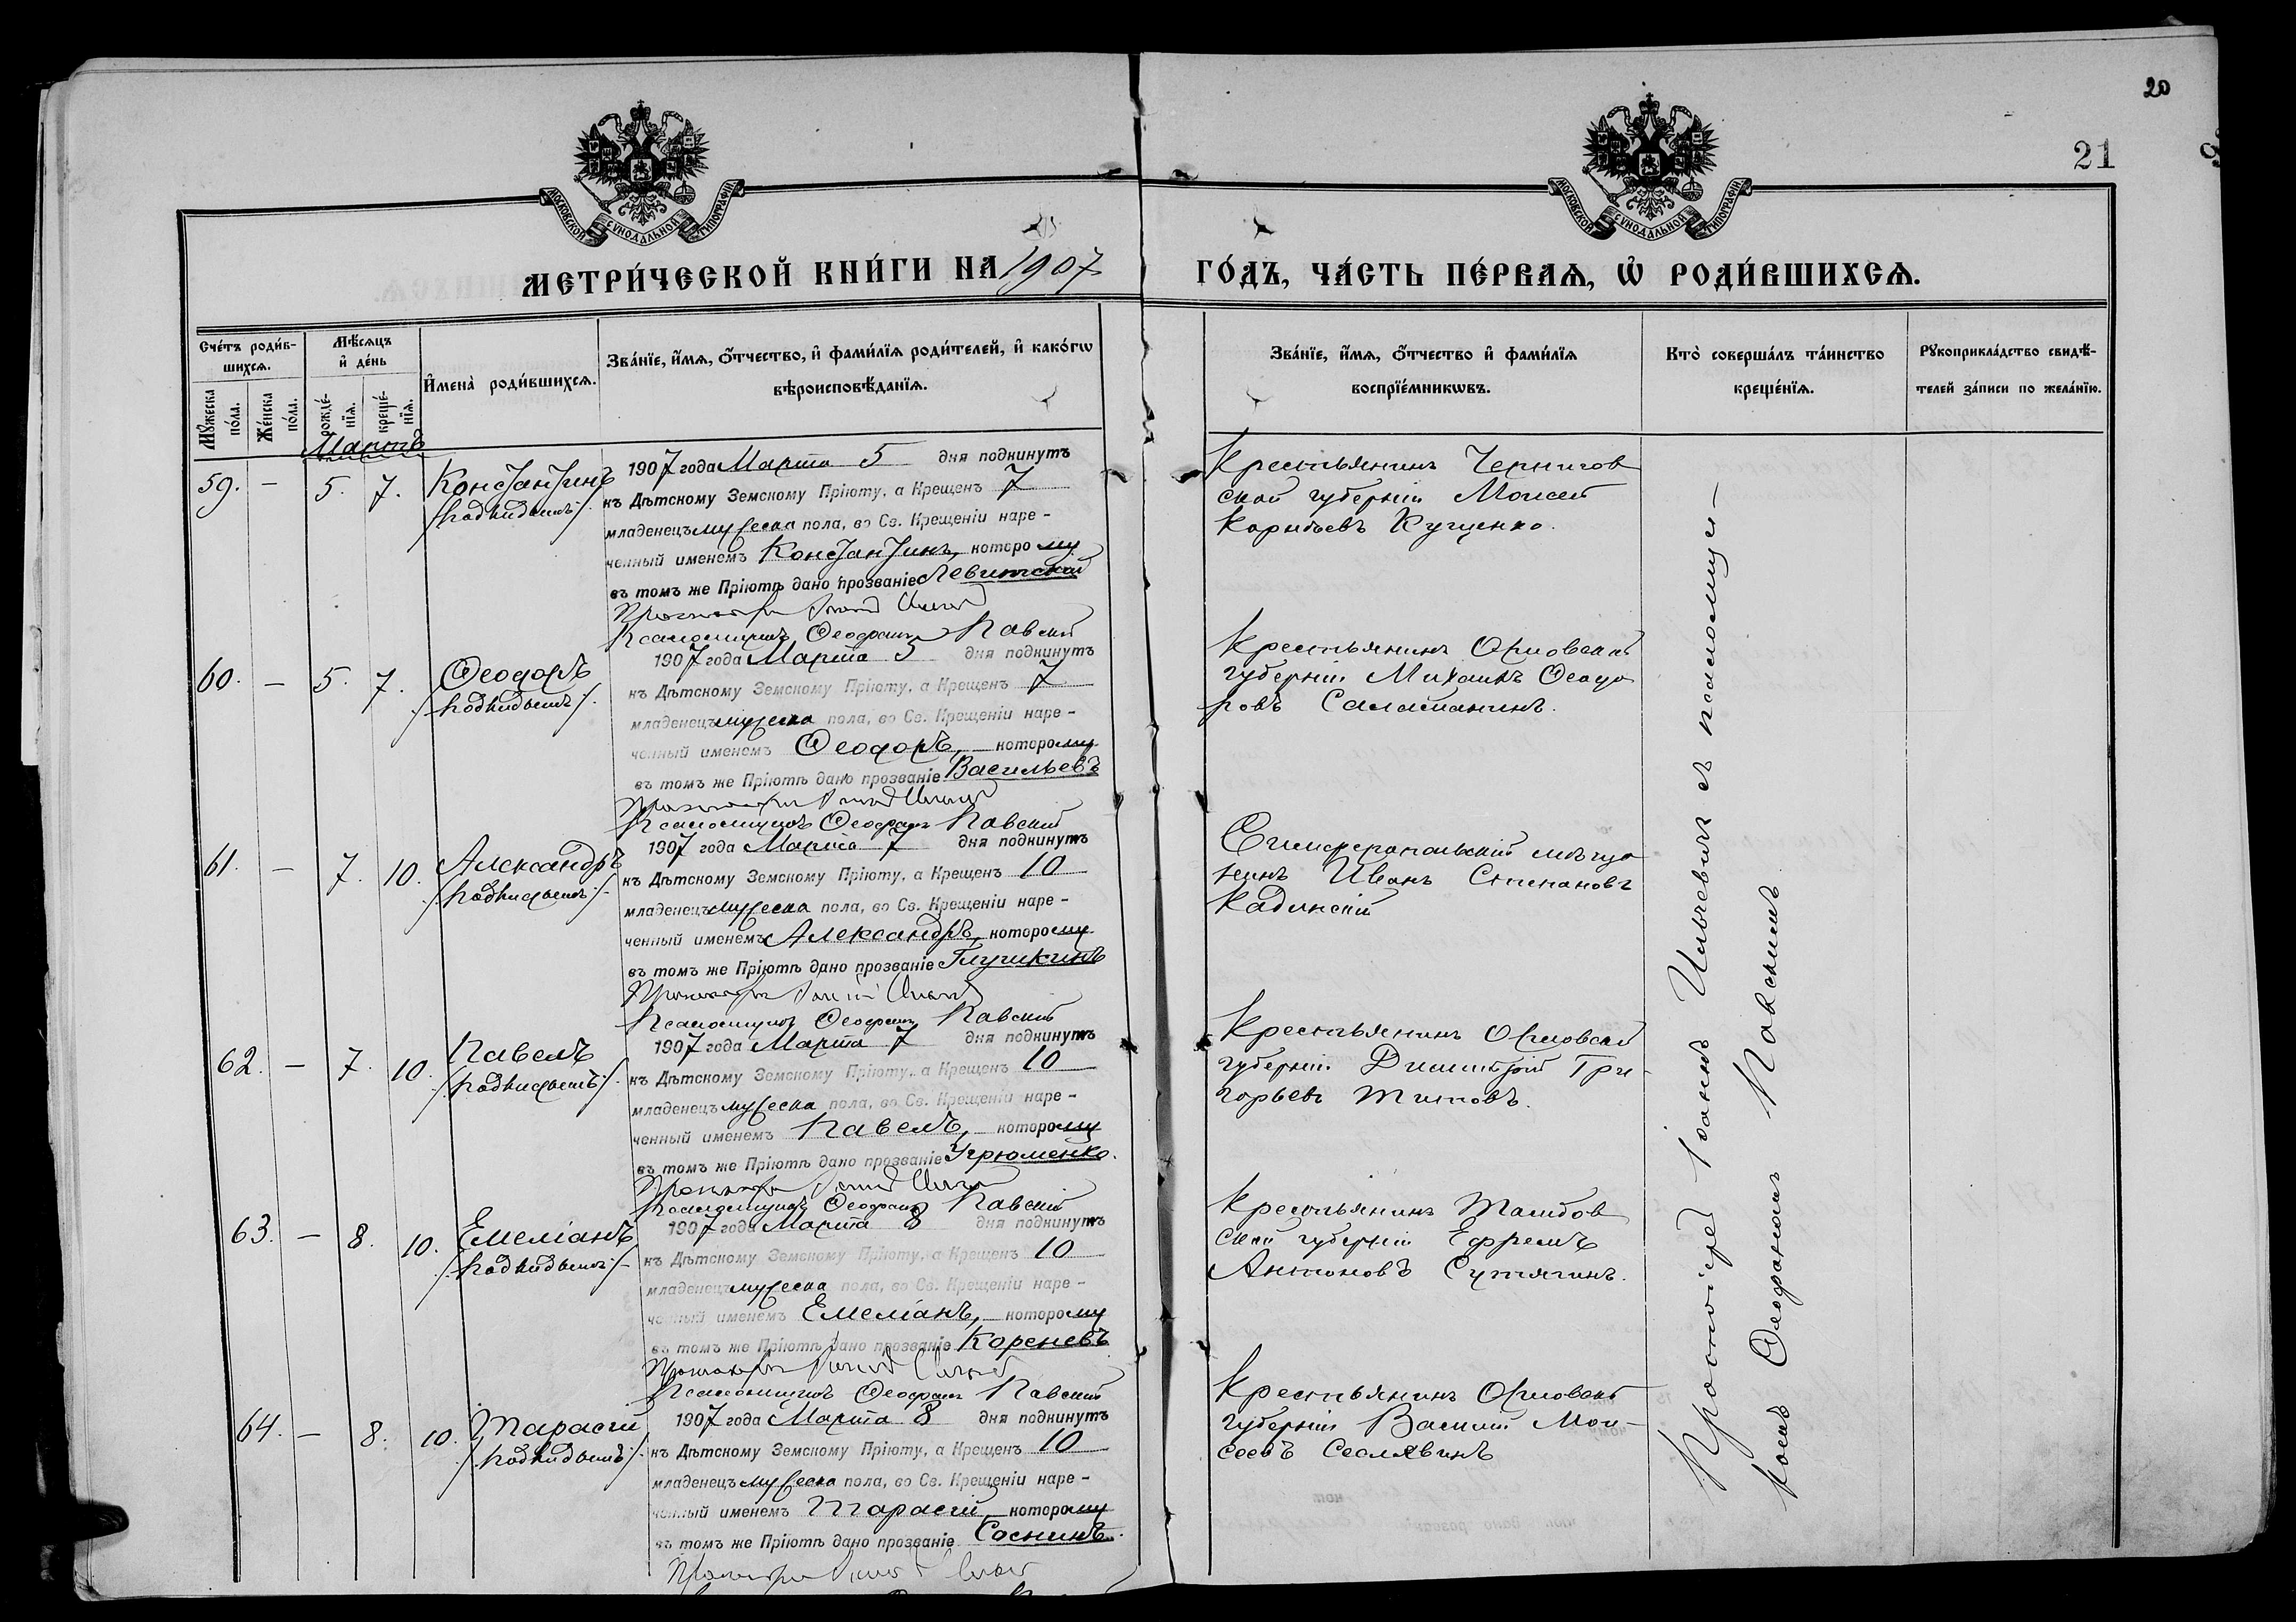 20
21
МОСКОВСКОЙ СУНОДАЛЬНОЙ ТИПОГРАФІИ
МОСКОВСКОЙ СУНОДАЛЬНОЙ ТИПОГРАФІИ
МЕТРИ́ЧЕСКОЙ КНИ́ГИ НА 1907
ГО́ДЪ, ЧА́СТЬ ПЕ́РВАѦ, Ѡ҆ РОДИ́ВШИХСѦ.
Сче́тъ роди́в-
шихсѧ.
Мꙋ́жеска
по́ла.
Же́нска
по́ла.
Мѣ́сѧцъ
и҆ де́нь
рожде́-
нїѧ.
креще́-
нїѧ.
И҆мена̀ роди́вшихсѧ.
Зва́нїе, и҆́мѧ, ѻ҆́тчество, и҆ фами́лїѧ роди́телей, и҆ како́гѡ
вѣроисповѣ́данїѧ.
Зва́нїе, и҆́мѧ, ѻ҆́тчество и҆ фами́лїѧ
воспрїе́мникѡвъ.
Кто̀ соверша́лъ та́инство
креще́нїѧ.
Рꙋкоприкла́дство свидѣ́-
телей за́писи по жела́нїю.
Мартъ
59. — 5. 7. Константинъ
/подкидышъ/.
1907 года Марта 5 дня подкинутъ
къ Дѣтскому Земскому Пріюту, а Крещенъ 7
младенецъ мужеска пола, во Св. Крещеніи наре-
ченный именемъ Константинъ, которому
въ томъ же Пріютѣ дано прозваніе Левитскій
Протоіерей Іоаннъ
Псаломщикъ Ѳеофанъ Павскій
Крестьянинъ Чернигов
ской губерніи Моисей
Корнѣевъ Куценко.
60. — 5. 7. Ѳеодоръ
/подкидышъ/.
1907 года Марта 5 дня подкинутъ
къ Дѣтскому Земскому Пріюту, а Крещенъ 7
младенецъ мужеска пола, во Св. Крещеніи наре-
ченный именемъ Ѳеодоръ, которому
въ томъ же Пріютѣ дано прозваніе Васильевъ
Протоіерей Іоаннъ
Псаломщикъ Ѳеофанъ Павскій
Крестьянинъ Орловской
губерніи Михаилъ Ѳеодо
ровъ
61. — 7. 10. Александръ
/подкидышъ/.
1907 года Марта 7 дня подкинутъ
къ Дѣтскому Земскому Пріюту, а Крещенъ 10
младенецъ мужеска пола, во Св. Крещеніи наре-
ченный именемъ Александръ, которому
въ томъ же Пріютѣ дано прозваніе Глушкинъ
Протоіерей Іоаннъ
Псаломщикъ Ѳеофанъ Павскій
Симферопольскій мѣща
нинъ Иванъ Степановъ
Кадинскій
62. — 7. 10. Павелъ
/подкидышъ/.
1907 года Марта 7 дня подкинутъ
къ Дѣтскому Земскому Пріюту, а Крещенъ 10
младенецъ мужеска пола, во Св. Крещеніи наре-
ченный именемъ Павелъ, которому
въ томъ же Пріютѣ дано прозваніе Угрюменко.
Протоіерей Іоаннъ
Псаломщикъ Ѳеофанъ Павскій
Крестьянинъ Орловской
губерніи Димитрій Гри-
горьевъ Титовъ.
63. — 8. 10. Емеліанъ
/подкидышъ/.
1907 года Марта 8 дня подкинутъ
къ Дѣтскому Земскому Пріюту, а Крещенъ 10
младенецъ мужеска пола, во Св. Крещеніи наре-
ченный именемъ Емеліанъ, которому
въ томъ же Пріютѣ дано прозваніе Кореневъ
Протоіерей Іоаннъ
Псаломщикъ Ѳеофанъ Павскій
Крестьянинъ Тамбов
ской губерніи Ефремъ
Антоновъ Сутягинъ.
64. — 8. 10. Тарасій
/подкидышъ/.
1907 года Марта 8 дня подкинутъ
къ Дѣтскому Земскому Пріюту, а Крещенъ 10
младенецъ мужеска пола, во Св. Крещеніи наре-
ченный именемъ Тарасій, которому
въ томъ же Пріютѣ дано прозваніе Соснинъ.
Протоіерей Іоаннъ
Крестьянинъ Орловской
губерніи Василій Мои-
сеевъ Сеславинъ
Протоіерей Іоаннъ съ псаломщи-
комъ Ѳеофаномъ Павскимъ